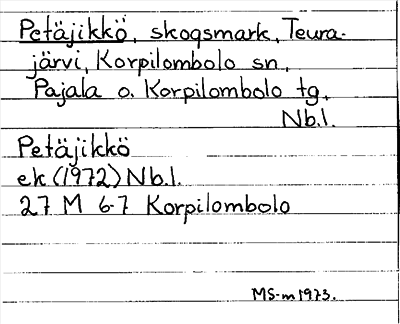 Petäjikkö, skogsmark, Teura-
järvi, Korpilombolo sn,
Pajala o. Korpilombolo tg.
Nb.l.
Petäjikkö
ek (1972) Nb.l.
27 M 6-7 Korpilombolo
MS-m 1973.